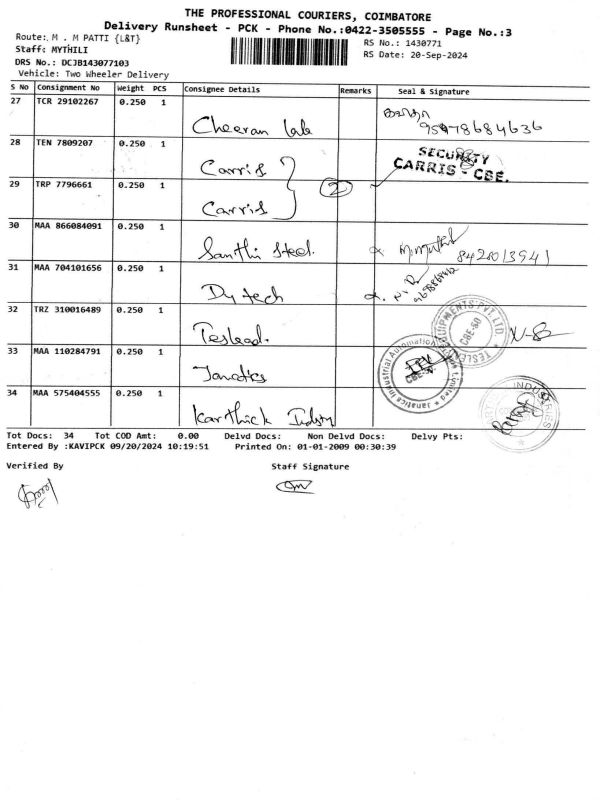 THE PROFESSIONAL COURIERS, COIMBATORE
Delivery Runsheet - PCK - Phone No.:0422-3505555 - Page No.:3
Route: M . M PATTI {L&T}
RS No.: 1430771
Staff: MYTHILI
RS Date: 20-Sep-2024
DRS No.: DCJB143077103
Vehicle: Two Wheeler Delivery
S No Consignment No Weight PCS Consignee Details Remarks Seal & Signature
27 TCR 29102267 0.250 1
Cheeran lab
28 TEN 7809207 0.250 1
Carris
SECURITY
CARRIS - CBE.
29 TRP 7796661 0.250 1
2
Carris
30 MAA 866084091 0.250 1
Santhi Steel.
8428013941
31 MAA 704101656 0.250 1
Dytech
32 TRZ 310016489 0.250 1
Teslead.
CBE-60
33 MAA 110284791 0.250 1
Janatics
Janatics Industrial Automation
34 MAA 575404555 0.250 1
Karthick Indstry
Tot Docs: 34 Tot COD Amt: 0.00 Delvd Docs: Non Delvd Docs: Delvy Pts:
Entered By :KAVIPCK 09/20/2024 10:19:51 Printed On: 01-01-2009 00:30:39
Verified By Staff Signature